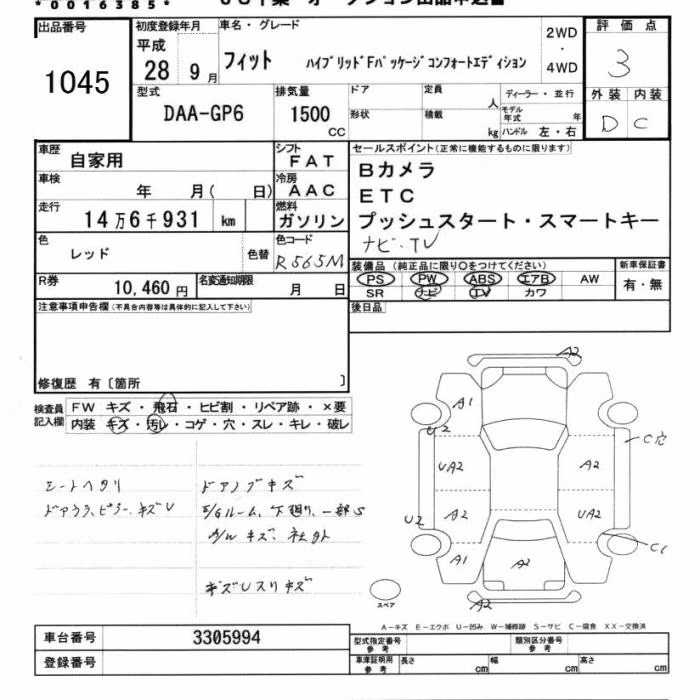 *0016385*
出品番号
1045
初度登録年月
平成
28 9月
車名・グレード
フィット ハイブリッドFパッケージコンフォートエディション
2WD
・
4WD
評価点
3
外装 内装
D C
型式
DAA-GP6
排気量
1500
CC
ドア 定員 人
形状 積載 kg
ディーラー・並行
モデル年式 年
ハンドル 左・右
車歴
自家用
シフト
FAT
車検
年 月( 日)
冷房
AAC
走行
14万6千931 km
燃料
ガソリン
色
レッド
色替
色コード
R565M
R券
10,460円
名変通知期限
月 日
セールスポイント(正常に機能するものに限ります)
Bカメラ
ETC
プッシュスタート・スマートキー
ナビ・TV
装備品(純正品に限り○をつけてください)
PS PW ABS エアB AW
SR ナビ TV カワ
新車保証書
有・無
後日品
注意事項申告欄(不具合内容等は具体的に記入して下さい)
修復歴 有〔箇所 〕
検査員記入欄
FW キズ・飛石・ヒビ割・リペア跡・×要
内装 キズ・汚レ・コゲ・穴・スレ・キレ・破レ
シートヘタリ
ドアウラ、ピラー、キズU
ドアノブキズ
E/Gルーム、下廻り、一部S
A/W キズ、社外
キズUスリキズ
A2
A1
U2
C穴
UA2
A2
A2
U2
UA2
C1
A1
A2
A2
スペア
A−キズ E−エクボ U−凹み W−補修跡 S−サビ C−腐食 XX−交換済
車台番号
3305994
登録番号
型式指定番号
参考
類別区分番号
参考
車庫証明用
参考
長さ cm
幅 cm
高さ cm